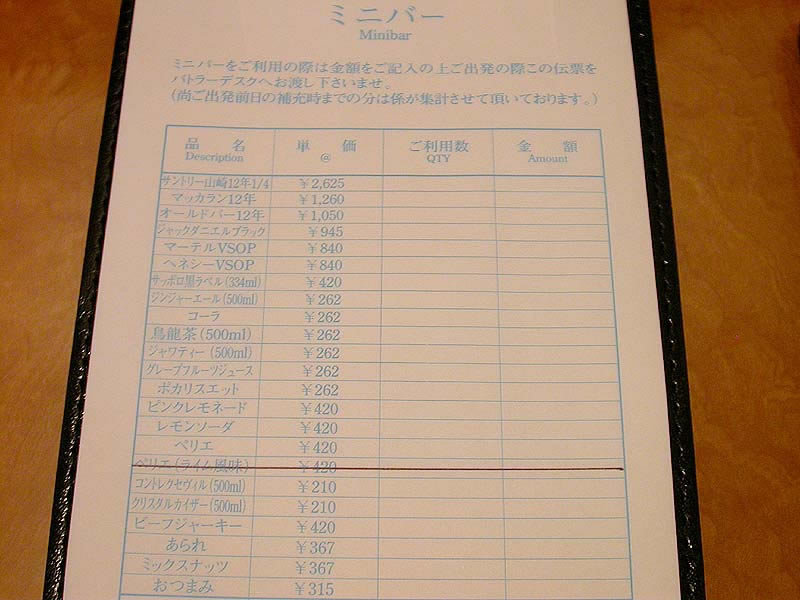 ミニバー
Minibar
ミニバーをご利用の際は金額をご記入の上ご出発の際この伝票を
バトラーデスクへお渡し下さいませ。
(尚ご出発前日の補充時までの分は係が集計させて頂いております。)
品 名 単 価 ご利用数 金 額
Description @ QTY Amount
サントリー山崎12年1/4 ¥2,625
マッカラン12年 ¥1,260
オールドパー12年 ¥1,050
ジャックダニエルブラック ¥945
マーテルVSOP ¥840
ヘネシーVSOP ¥840
サッポロ黒ラベル(334ml) ¥420
ジンジャーエール(500ml) ¥262
コーラ ¥262
烏龍茶(500ml) ¥262
ジャワティー(500ml) ¥262
グレープフルーツジュース ¥262
ポカリスエット ¥262
ピンクレモネード ¥420
レモンソーダ ¥420
ペリエ ¥420
ペリエ(ライム風味) ¥420
コントレクセヴィル(500ml) ¥210
クリスタルカイザー(500ml) ¥210
ビーフジャーキー ¥420
あられ ¥367
ミックスナッツ ¥367
おつまみ ¥315